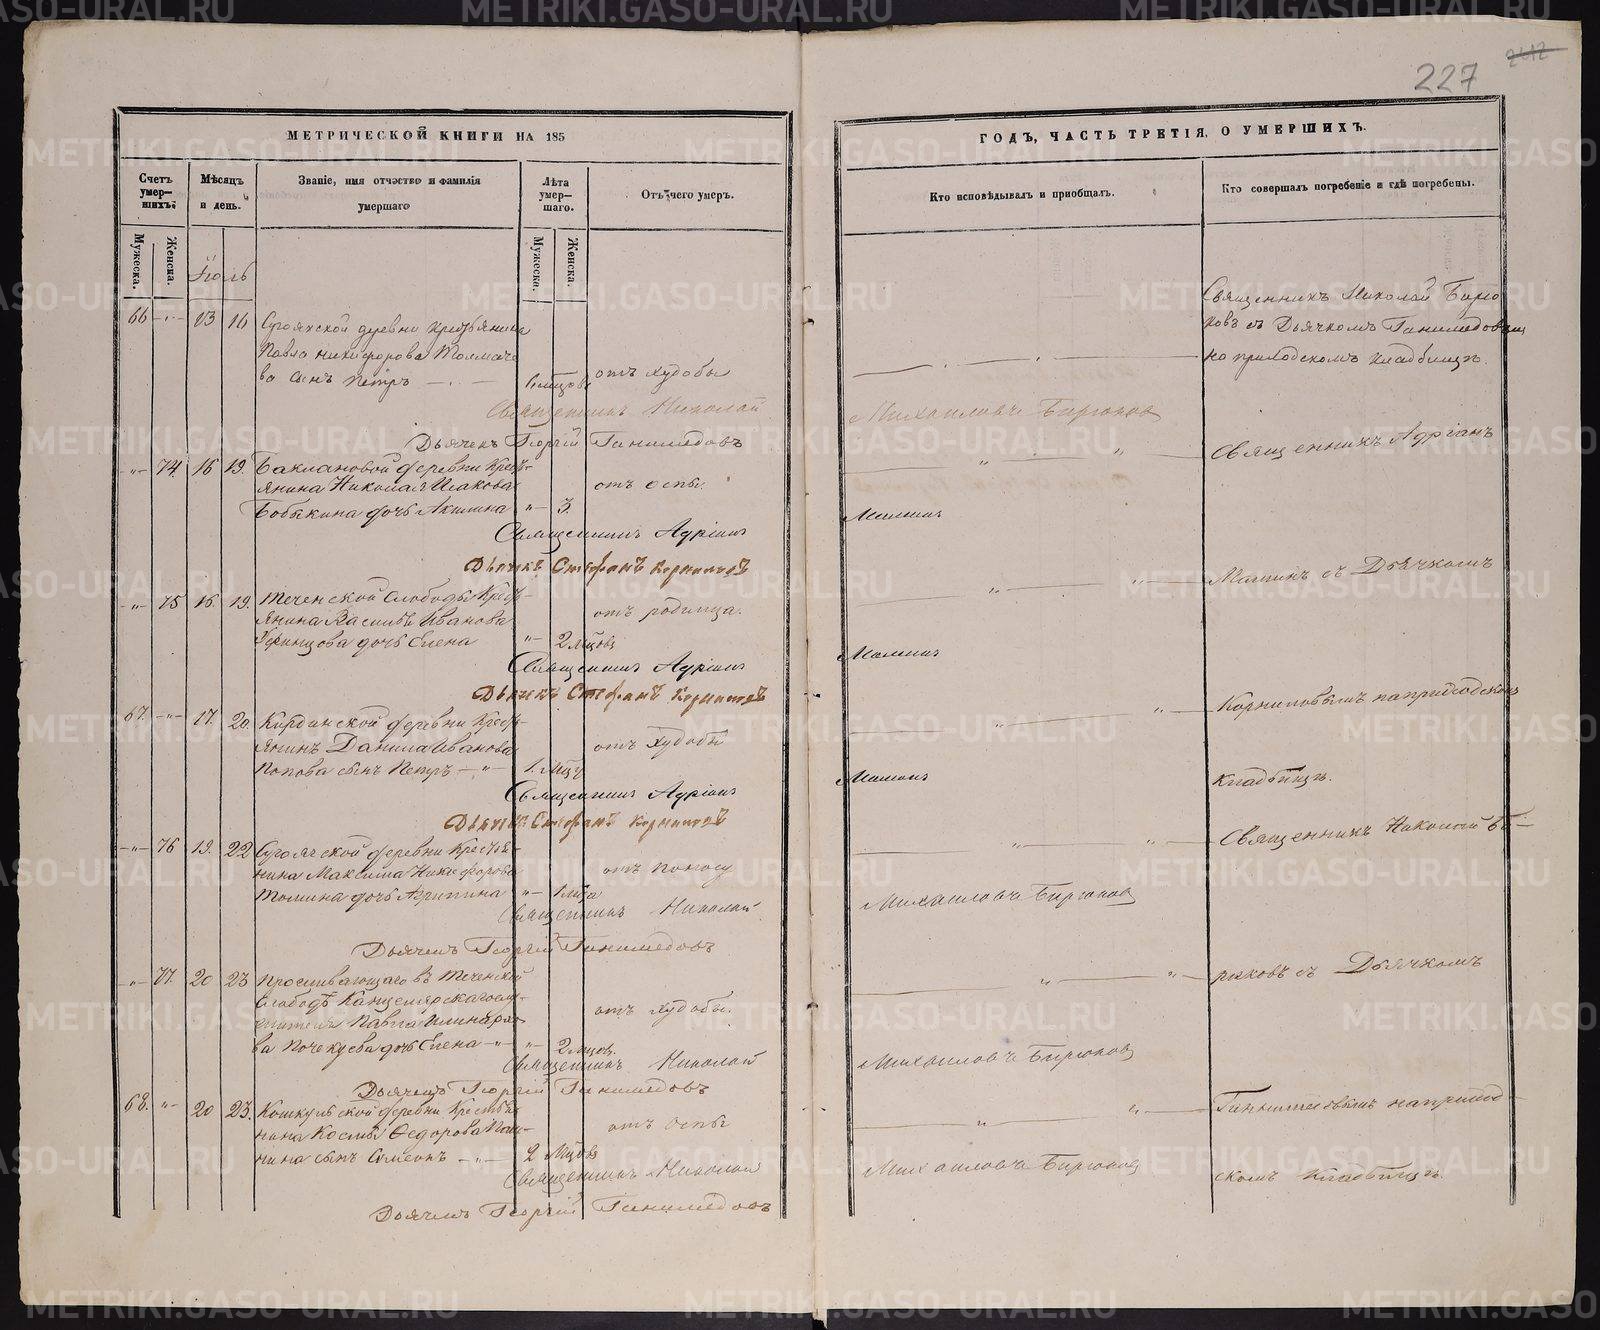 227
2412
МЕТРИЧЕСКОЙ КНИГИ НА 185
Счетъ умер-шихъ.
Мѣсяцъ и день.
Званіе, имя отчество и фамилія умершаго
Лѣта умер-шаго.
Отъ чего умеръ.
Мужеска.
Женска.
Мужеска.
Женска.
Іюль
66 13 16
деревни Крестьянина
Павла Никифорова Толмаче
ва сынъ Петръ
отъ худобы
Священникъ Николай
Дьячекъ Георгій Ганимедовъ
74. 16 19. Баклановой деревни Кресть-
янина Николая Исакова
Бобыкина дочь Акилина 3.
отъ оспы.
Священникъ Адріанъ
Дьячекъ Стефанъ
75 16. 19. Теченской Слободы Крест
янина Василья Иванова
дочь Елена 2 мѣсяцовъ
отъ родимца.
Священникъ Адріанъ
Дьячекъ Стефанъ
67. 17. 20. Кирдинской деревни Крест
янинъ Данила Иванова
Попова сынъ Петръ 1. мѣсяцу
отъ худобы
Священникъ Адріанъ
Дьячекъ Стефанъ
76 19. 22 деревни Крестья-
нина Максима Никифорова
дочь Агрипина
отъ поносу
Священникъ Николай
Дьячекъ Георгій Ганимедовъ
77. 20 23 Проживающаго въ Теченской
Слободѣ
Павла
ва дочь Елена 2
отъ худобы.
Священникъ Николай
Дьячекъ Георгій Ганимедовъ
68. 20 23. деревни Крестья
нина Космы Ѳедорова Пан-
нина сынъ Симеонъ 2
отъ оспы
Священникъ Николай
Дьячекъ Георгій Ганимедовъ
ГОДЪ, ЧАСТЬ ТРЕТІЯ, О УМЕРШИХЪ.
Кто исповѣдывалъ и пріобщалъ.
Кто совершалъ погребеніе и гдѣ погребены.
Священникъ Николай Бирю
ковъ съ Дьячкомъ Ганимедовымъ
на приходскомъ кладбищѣ.
Михаиловъ Бирюковъ
Священникъ Адріанъ
Малинъ
Малинъ съ Дьячкомъ
Малинъ
Корниловымъ на приходском
Малинъ
кладбищѣ.
Священникъ Николай Би-
Михаиловъ Бирюковъ
рюковъ съ Дьячкомъ
Михаиловъ Бирюковъ
Ганимедовымъ на приход-
Михаиловъ Бирюковъ
скомъ кладбищѣ.
METRIKI.GASO-URAL.RU